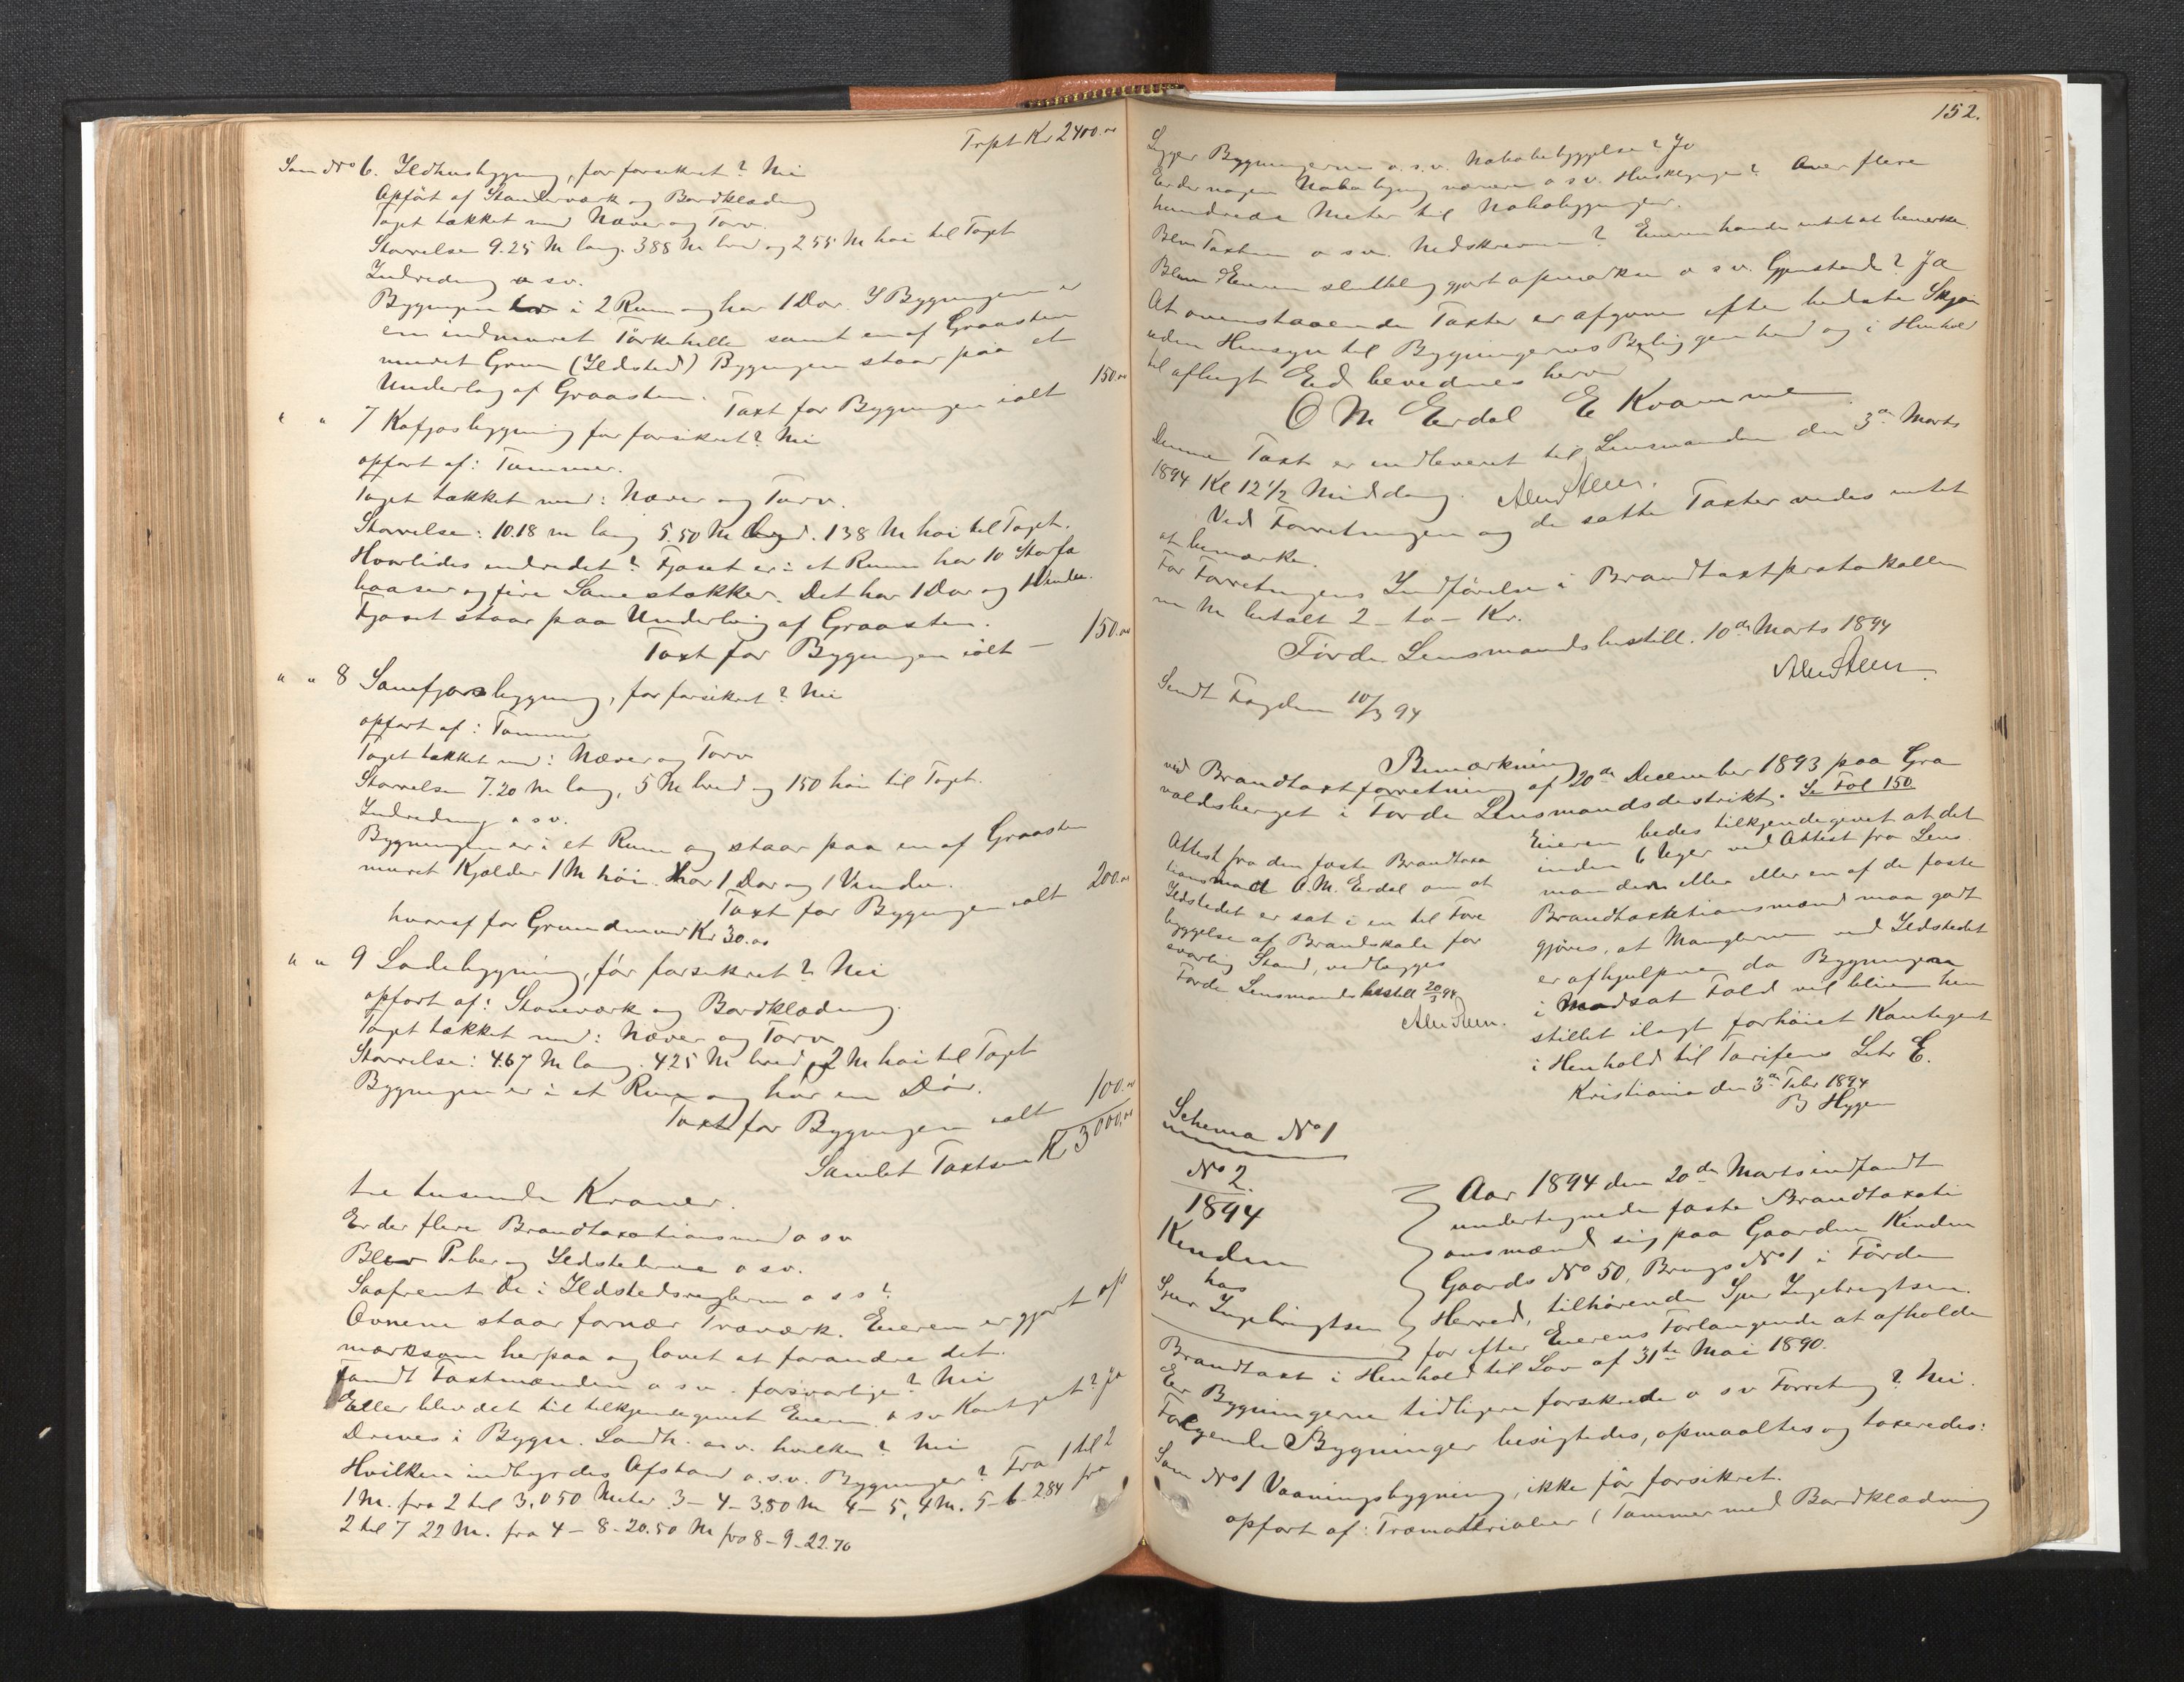 Trpt Kr 2400.00
Som No 6. Ildhusbygning, før forsikret? Nei
Opført af Standerværk og Bordklædning
Taget tækket med Næver og Torv.
Størrelse 9.25 M lang. 388 M bred og 255 M høi til Taget
Indredning o sv.
Bygningen er i 2 Rum og har 1 Dør. I Bygningen er
en indmuret Tørkehelle samt en af Graasten
muret Gruve (Ildsted) Bygningen staar paa et
Underlag af Graasten. Taxt for Bygningen ialt 150.00
" " 7 Kofjøsbygning før forsikret? Nei
opført af: Tømmer.
Taget tækket med: Næver og Torv.
Størrelse: 10.18 m lang 5.50 M bred. 138 M høi til Taget.
Hvorledes indredet? Fjøset er i et Rum har 10 Storfæ
baaser og fire Sauestækker. Det har 1 Dør og 1 Vindu.
Fjøset staar paa Underlag af Graasten.
Taxt for Bygningen ialt – 150.00
" " 8 Sauefjøsbygning, før forsikret? Nei
opført af: Tømmer
Taget tækket med: Næver og Torv
Størrelse 7.20 M lang, 5 M bred og 150 høi til Taget.
Indredning o sv.
Bygningen er i et Rum og staar paa en af Graasten
muret Kjælder 1 M høi. Har 1 Dør og 1 Vindu.
Taxt for Bygningen ialt 200.00
hvoraf for Grundmur Kr 30.00
" " 9 Ladebygning, før forsikret? Nei
opført af: Staveværk og Bordklædning.
Taget tækket med: Næver og Torv
Størrelse: 4.67 M lang. 425 M bred, 2 M høi til Taget
Bygningen er i et Rum og har en Dør.
Taxt for Bygningen ialt 100.00
Samlet Taxtsum Kr 3000.00
tre tusende Kroner.
Er der flere Brandtaxationsmænd o sv
Blev Piber og Ildstederne o sv.
Saafremt de i Ildstedsreglerne o s s?
Ovnene staar fornær Træværk. Eieren er gjort op
mærksom herpaa og lovet at forandre det.
Fandt Taxtmænden o sv. forsvarlige? Nei
Eller blev det til tilkjendegivet Eieren o sv Kontigent? Ja
Drives i Bygn. Landh. o sv. hvilken? Nei
Hvilken indbyrdes Afstand o.s.v. Bygninger? Fra 1 til 2
1 M. fra 2 til 3, 050 Meter 3 – 4 – 3.50 M 4 – 5, 4 M. 5 – 6 – 284 fra
2 til 7 22 M. fra 4 – 8 – 20.50 M fra 8 – 9 – 22.70
152.
Ligger Bygningerne o.s.v. Nabobebyggelse? Jo
Er der nogen Nabobygning nærmere o sv. Huskbygninger? Over flere
hundrede Meter til Nabobygninger.
Blev Taxten o sv. Nedskreven? Eieren havde intet at bemærke.
Blev Eieren sluttelig gjort opmærksom o sv. Gjenstande? Ja
At ovenstaaende Taxter er afgivne efter bedste Skjøn
uden Hensyn til Bygningernes Beliggenhed og i Henhold
til aflagt Ed bevidnes herved
O M Erdal E Kvamme
Denne Taxt er indleveret til Lensmanden den 3de Marts
1894 Kl 12 1/2 Middag.
Ved Forretningen og de satte Taxter vides intet
at bemærke.
For Forretningens Indførelse i Brandtaxtprotokollen
m M betalt 2 – to – Kr.
Førde Lensmandsbestill. 10de Marts 1894
Sendt Fogden 10/3 94
Bemærkning
ved Brandtaxtforretning af 20de December 1893 paa Gra
valdsberget i Førde Lensmandsdestrikt. Se Fol 150.
Attest fra den faste Brandtaxa
tionsmand O.M. Erdal om at
Ildstedet er sat i en til Fore
byggelse af Brandskade for
svarlig Stand, vedlægges
Førde Lensmandsbestill 20/3 94
Eieren bedes tilkjendegivet at det
inden 6 Uger ved Attest fra Lens
manden eller eller en af de faste
Brandtaxtationsmænd maa godt
gjøres, at Manglerne ved Ildstedet
er afhjulpne da Bygningen
i Modsat Fald vil blive hen
stillet ilagt forhøiet Kontigent
i Henhold til Tarifens Litr E.
Kristiania den 3de Febr 1894
B Hygen
Schema No 1
No 2.
1894
Kinden
hos
Sjur Ingebrigtsen
Aar 1894 den 20de Marts indfandt
undertegnede faste Brandtaxati
onsmænd sig paa Gaarden Kinden
Gaards No 50, Brugs No 1 i Førde
Herred, tilhørende Sjur Ingebrigtsen.
for efter Eierens Forlangende at afholde
Brandtaxt i Henhold til Lov af 31te Mai 1890.
Er Bygningerne tidligere forsikrede o sv Forretning? Nei.
Følgende Bygninger besigtedes, opmaaltes og taxeredes:
Som No 1 Vaaningsbygning, ikke før forsikret.
opført af: Træmaterialier (Tømmer med Bordklædning